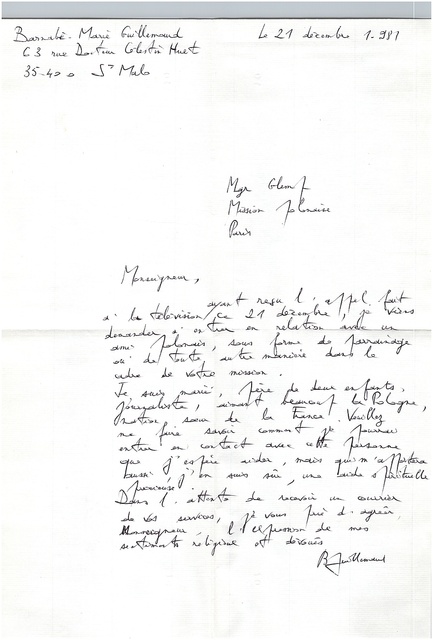 Barnabé-Marie Guillemaud
63 rue Docteur Célestin Huet
35-400 St Malo
Le 21 décembre 1.981
Mgr Glemp
Mission polonaise
Paris
Monseigneur,
ayant reçu l'appel fait
à la télévision, ce 21 décembre, je viens
demander à entrer en relation avec un
ami polonais, sous forme de parrainage
ou de toute autre manière dans le
cadre de votre mission.
Je suis marié, père de deux enfants,
journaliste, aimant beaucoup la Pologne,
nation sœur de la France. Veuillez
me faire savoir comment je pourrai
entrer en contact avec cette personne
que j'espère aider, mais qui m'apportera
aussi, j'en suis sûr, une aide spirituelle
précieuse.
Dans l'attente de recevoir un courrier
de vos services, je vous prie d'agréer,
Monseigneur, l'expression de mes
sentiments religieux et dévoués
B. Guillemaud